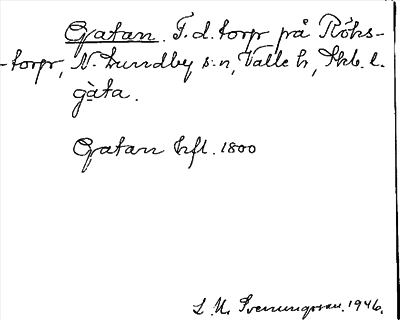 Gatan. F.d. torp på Röks-
-torp, N. Lundby s:n, Valle h, Skb. l.
gàta.
Gatan hfl. 1800
S. U. Svenungsson. 1946.